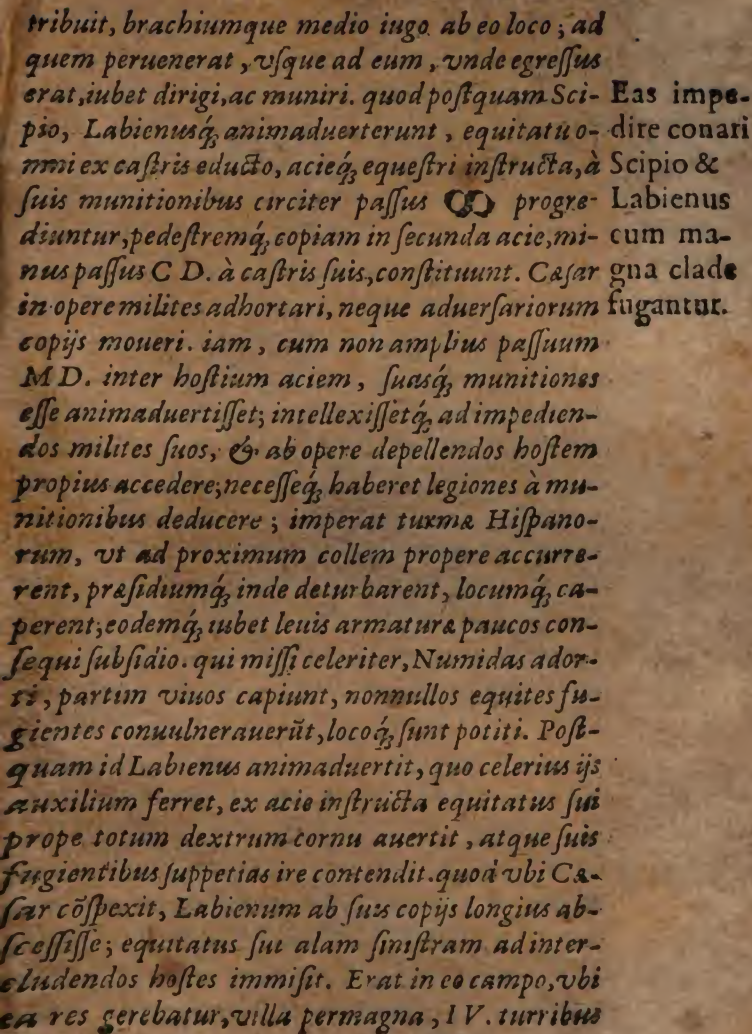 tribuit, brachiumque medio iugo ab eo loco, ad
quem peruenerat, vſque ad eum, vnde egreſſus
erat, iubet dirigi, ac muniri. quod poſtquam Sci-
pio, Labienusq́; animaduerterunt, equitatu o-
mni ex caſtris educto, acieq́; equeſtri inſtructa, à
ſuis munitionibus circiter paſſus ↀ progre-
diuntur, pedeſtremq́; copiam in ſecunda acie, mi-
nus paſſus C D. à caſtris ſuis, conſtituunt. Cæſar
in opere milites adhortari, neque aduerſariorum
copijs moueri. iam, cum non amplius paſſuum
M D. inter hoſtium aciem, ſuasq́; munitiones
eſſe animaduertiſſet; intellexiſſetq́; ad impedien-
dos milites ſuos, & ab opere depellendos hoſtem
propius accedere; neceſſeq́; haberet legiones à mu-
nitionibus deducere; imperat turmæ Hiſpano-
rum, vt ad proximum collem propere accurre-
rent, præſidiumq́; inde deturbarent, locumq́; ca-
perent; eodemq́; iubet leuis armaturæ paucos con-
ſequi ſubſidio. qui miſſi celeriter, Numidas ador-
ti, partim viuos capiunt, nonnullos equites fu-
gientes conuulnerauerũt, locoq́; ſunt potiti. Poſt-
quam id Labienus animaduertit, quo celerius ijs
auxilium ferret, ex acie inſtructa equitatus ſui
prope totum dextrum cornu auertit, atque ſuis
fugientibus ſuppetias ire contendit. quod vbi Cæ-
ſar cõſpexit, Labienum ab ſuis copijs longius ab-
ſceſſiſſe; equitatus ſui alam ſiniſtram ad inter-
cludendos hoſtes immiſit. Erat in eo campo, vbi
ea res gerebatur, villa permagna, I V. turribus
Eas impe-
dire conari
Scipio &
Labienus
cum ma-
gna clade
fugantur.